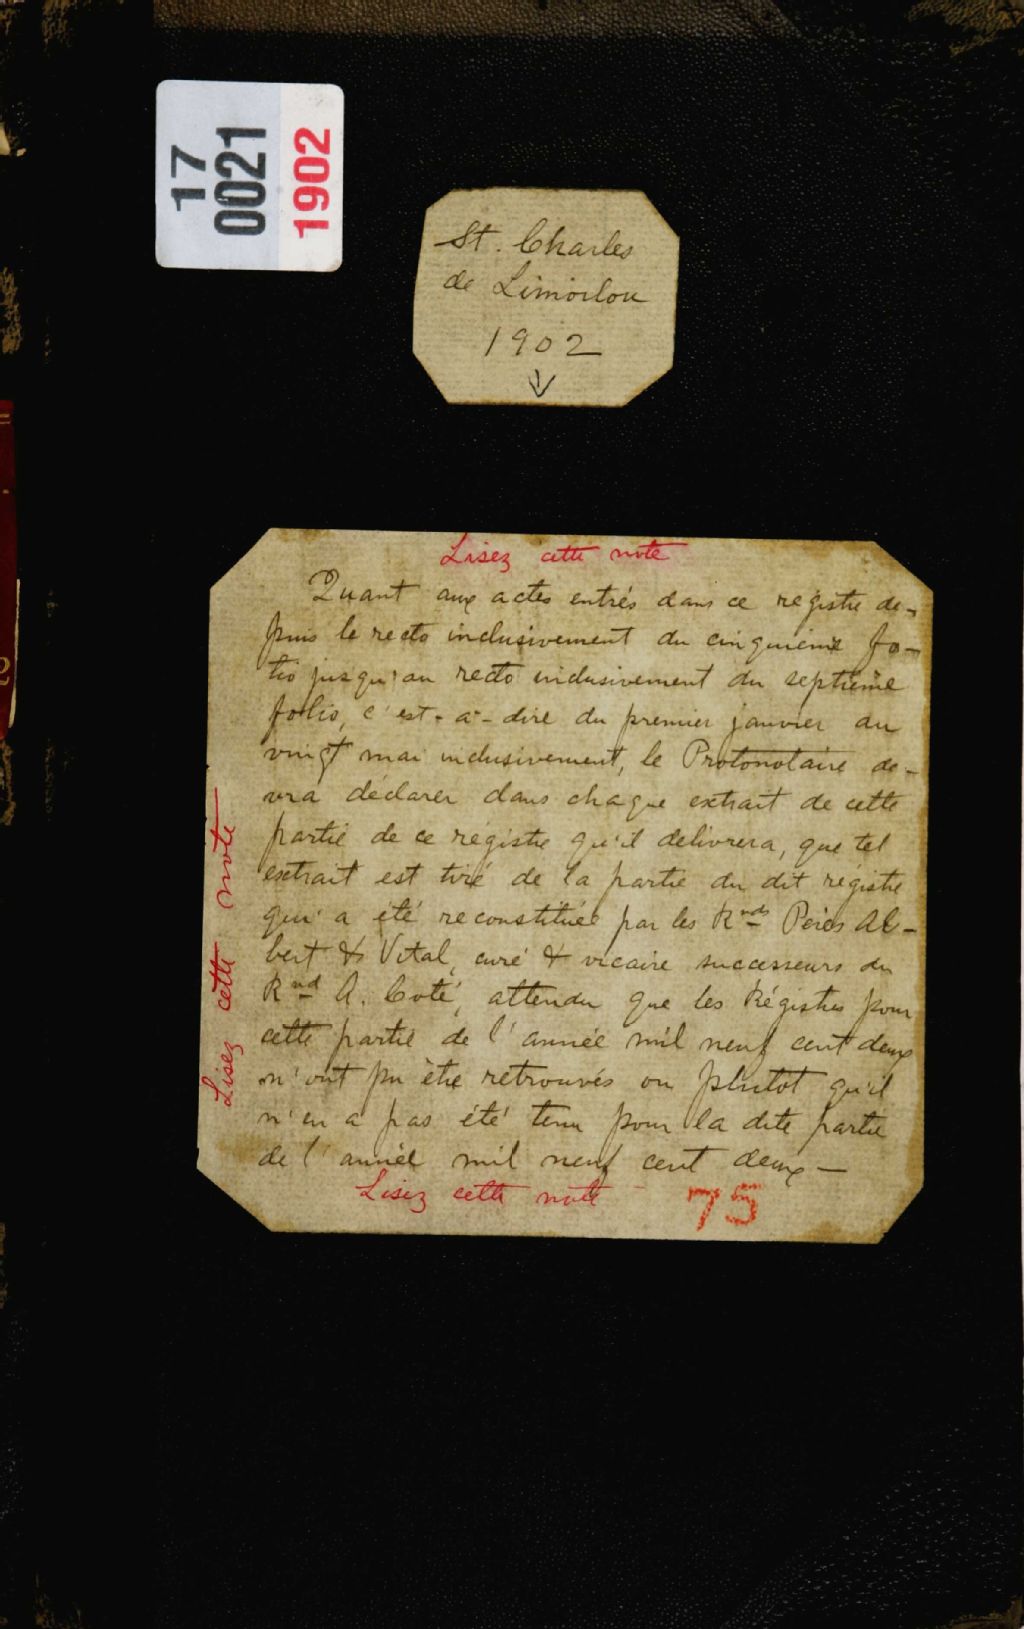 17
0021
1902
St. Charles
de Limoilou
1902
Lisez cette note
Quant aux actes entrés dans ce registre de-
puis le recto inclusivement du cinquième fo-
lio jusqu'au recto inclusivement du septième
folio, c'est-à-dire du premier janvier au
vingt mai inclusivement, le Protonotaire de-
vra déclarer dans chaque extrait de cette
partie de ce registre qu'il délivrera, que tel
extrait est tiré de la partie du dit régistre
qui a été reconstituée par les Rnds Pères Al-
bert & Vital, curé & vicaire successeurs du
Rnd A. Coté, attendu que les Régistres pour
cette partie de l'année mil neuf cent deux
n'ont pu être retrouvés ou plutôt qu'il
n'en a pas été tenu pour la dite partie
de l'année mil neuf cent deux —
Lisez cette note
75
Lisez cette note